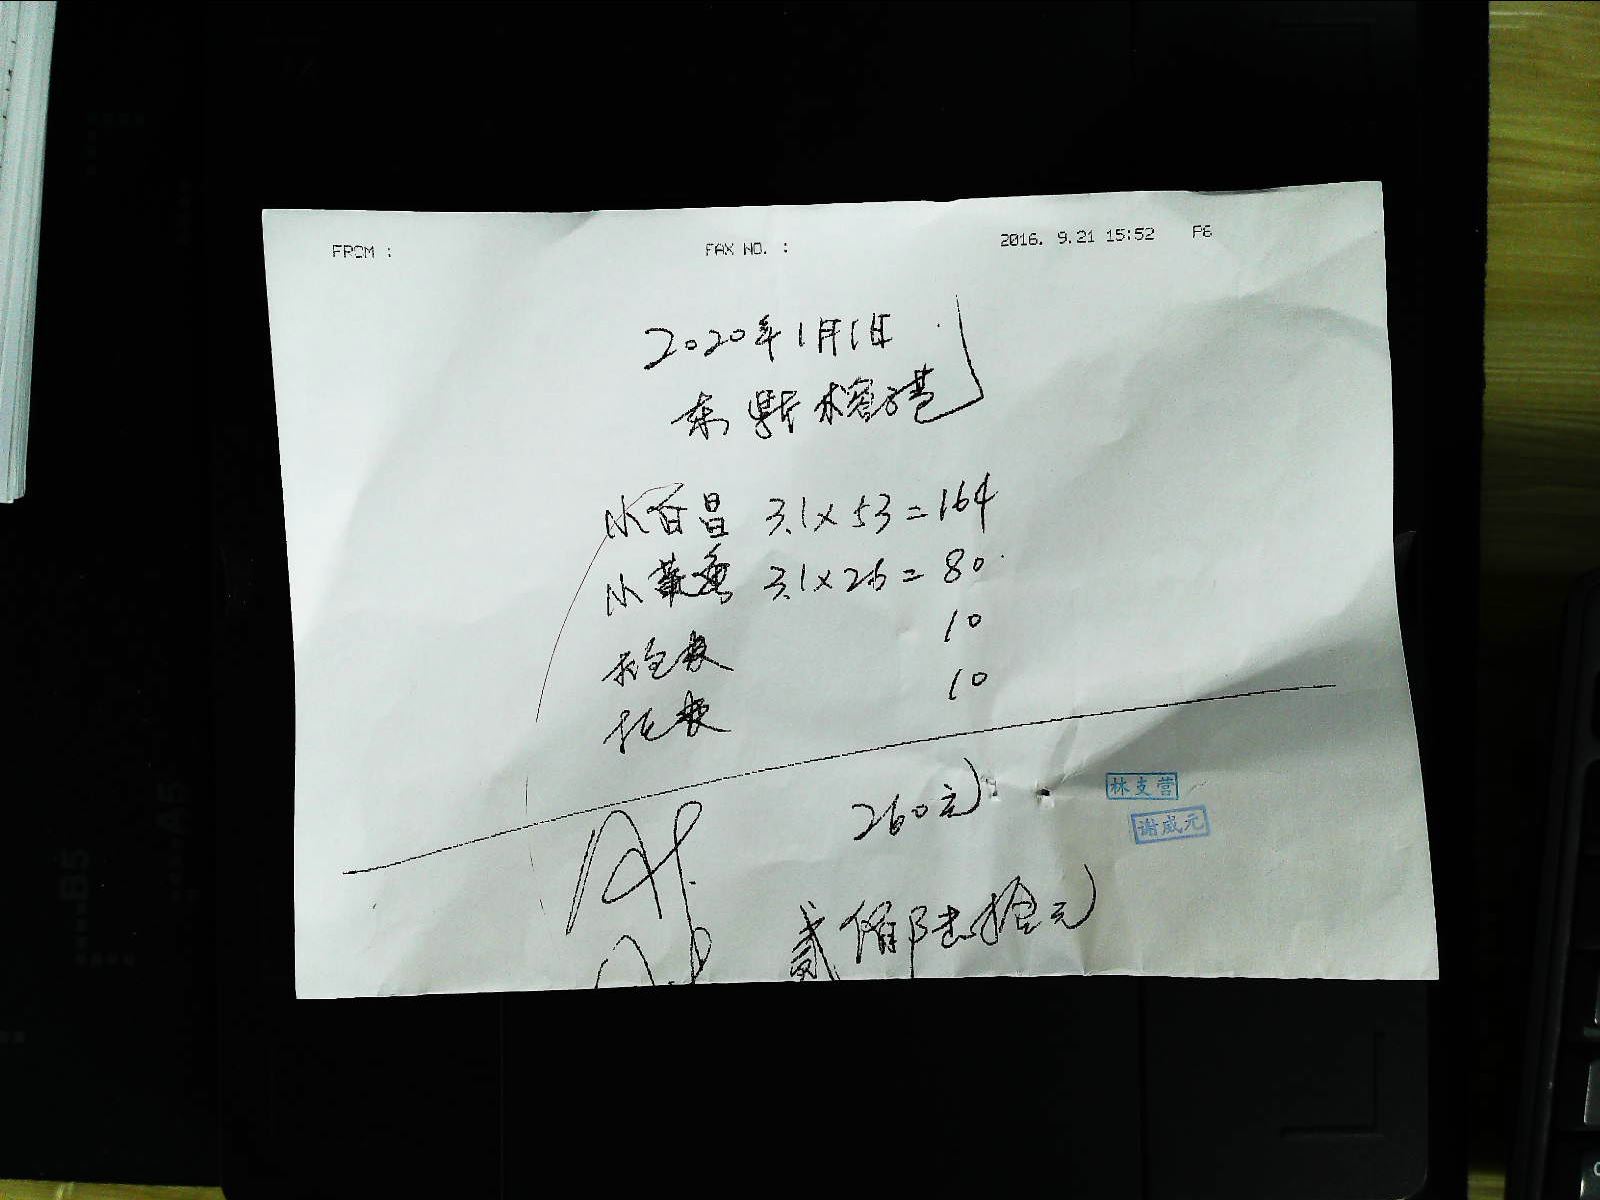 FROM :
FAX NO. :
2016. 9.21 15:52 P6
2020年1月1日
小百昌 3.1×53=164
小黄鱼 3.1×26=80
10
10
260元
林支营
谢威元
贰佰陆拾元